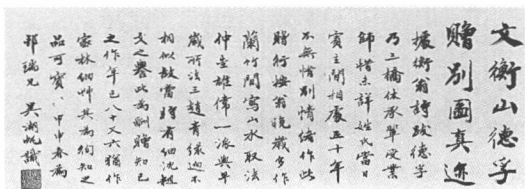 文衡山德孚
贈別圖真迹
據衡翁詩跋德孚
乃二橋休承輩受業
師惜未詳姓氏當日
賓主間相處五十年
不無惜別情緒作此
贈行按翁晚歲多作
蘭竹間寫山水取法
仲圭雄偉一派與早
歲所法三趙者迥不
相似故當時有細沈粗
文之譽此為酬贈知己
之作年已八十又六猶作
林細艸其為知之
品可寶、甲申春為
邦瑞兄 吳湖帆識